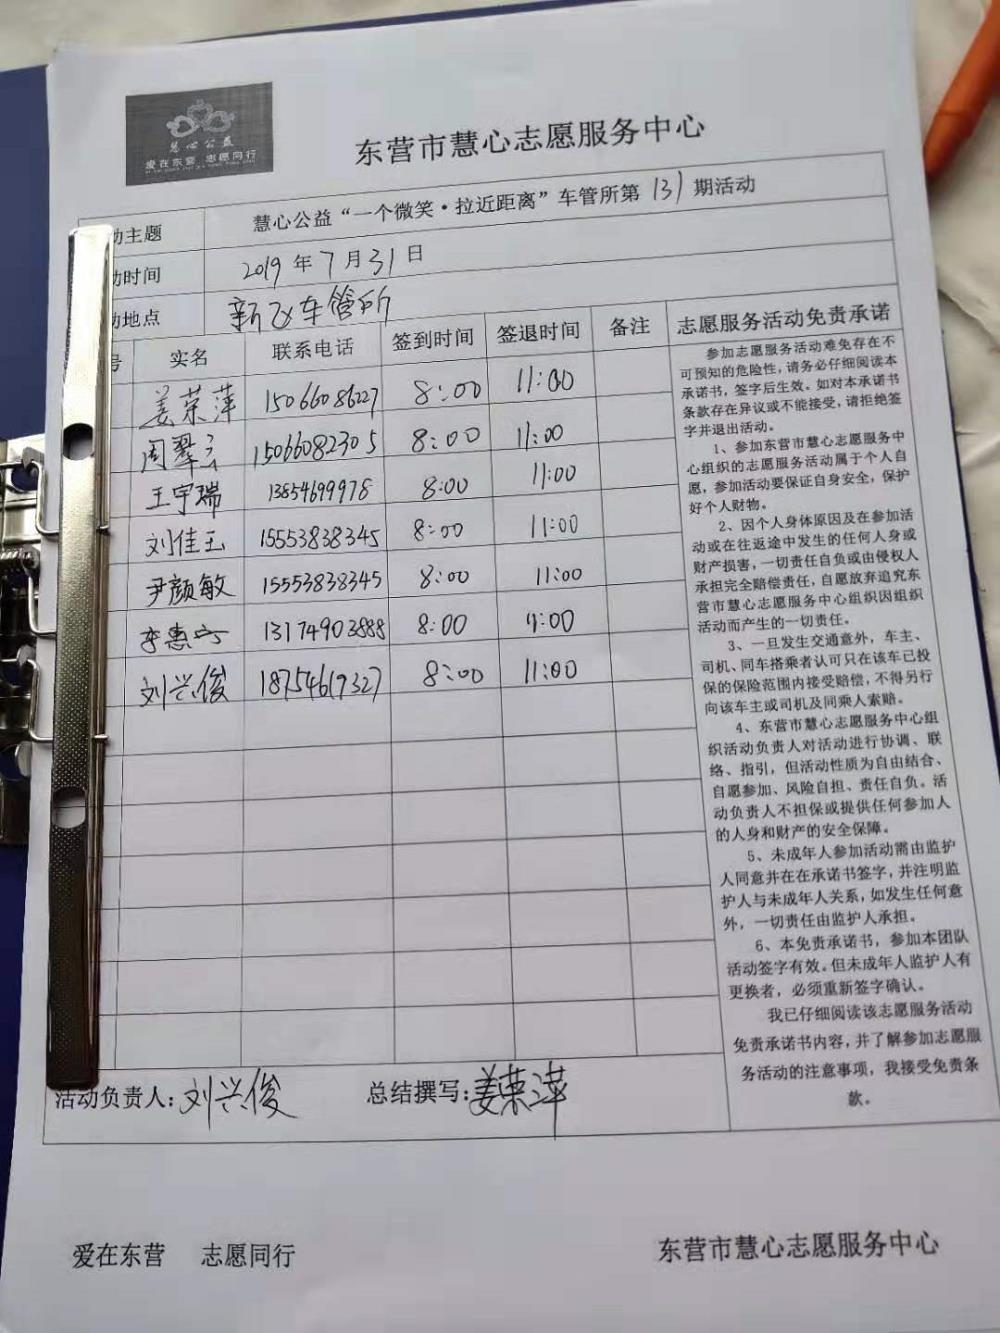 慧心公益
爱在东营 志愿同行
东营市慧心志愿服务中心
动主题 慧心公益“一个微笑·拉近距离”车管所第131期活动
动时间 2019年7月31日
动地点 新飞车管所
号 实名 联系电话 签到时间 签退时间 备注 志愿服务活动免责承诺
姜荣萍 15066086227 8:00 11:00
周翠 15066082305 8:00 11:00
王宇瑞 13854699978 8:00 11:00
刘佳玉 15553838345 8:00 11:00
尹颜敏 15553838345 8:00 11:00
李惠 13174903888 8:00 11:00
刘兴俊 18754619327 8:00 11:00
参加志愿服务活动难免存在不
可预知的危险性，请务必仔细阅读本
承诺书，签字后生效。如对本承诺书
条款存在异议或不能接受，请拒绝签
字并退出活动。
1、参加东营市慧心志愿服务中
心组织的志愿服务活动属于个人自
愿，参加活动要保证自身安全，保护
好个人财物。
2、因个人身体原因及在参加活
动或在往返途中发生的任何人身或
财产损害，一切责任自负或由侵权人
承担完全赔偿责任，自愿放弃追究东
营市慧心志愿服务中心组织因组织
活动而产生的一切责任。
3、一旦发生交通意外，车主、
司机、同车搭乘者认可只在该车已投
保的保险范围内接受赔偿，不得另行
向该车主或司机及同乘人索赔。
4、东营市慧心志愿服务中心组
织活动负责人对活动进行协调、联
络、指引，但活动性质为自由结合、
自愿参加、风险自担、责任自负。活
动负责人不担保或提供任何参加人
的人身和财产的安全保障。
5、未成年人参加活动需由监护
人同意并在在承诺书签字，并注明监
护人与未成年人关系，如发生任何意
外，一切责任由监护人承担。
6、本免责承诺书，参加本团队
活动签字有效。但未成年人监护人有
更换者，必须重新签字确认。
我已仔细阅读该志愿服务活动
免责承诺书内容，并了解参加志愿服
务活动的注意事项，我接受免责条
款。
活动负责人：刘兴俊 总结撰写：姜荣萍
爱在东营 志愿同行 东营市慧心志愿服务中心